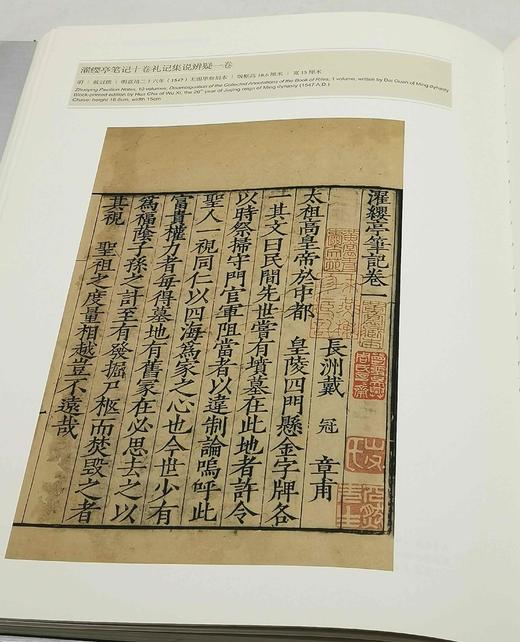 濯缨亭笔记十卷礼记集说辨疑一卷
明｜戴冠撰｜明嘉靖二十六年（1547）无锡华察刻本｜版框高 18.6 厘米｜宽 15 厘米
Zhuoying Pavilion Notes, 10 volumes; Disambiguation of the Collected Annotations of the Book of Rites, 1 volume, written by Dai Guan of Ming dynasty
Block-printed edition by Hua Cha of Wu Xi, the 26th year of Jiajing reign of Ming dynasty (1547 A.D.)
Chase: height 18.6cm, width 15cm
濯纓亭筆記卷一
長洲戴 冠 章甫
太祖高皇帝於中都 皇陵四門懸金字牌各
一其文曰民間先世嘗有墳墓在此地者許令
以時祭掃守門官軍阻當者以違制論嗚呼此
聖人一視同仁以四海爲家之心也今世少有
富貴權力者每得墓地有舊冢在必思去之以
爲福蔭子孫之計至有發掘尸柩而焚毀之者
其視 聖祖之度量相越豈不遠哉